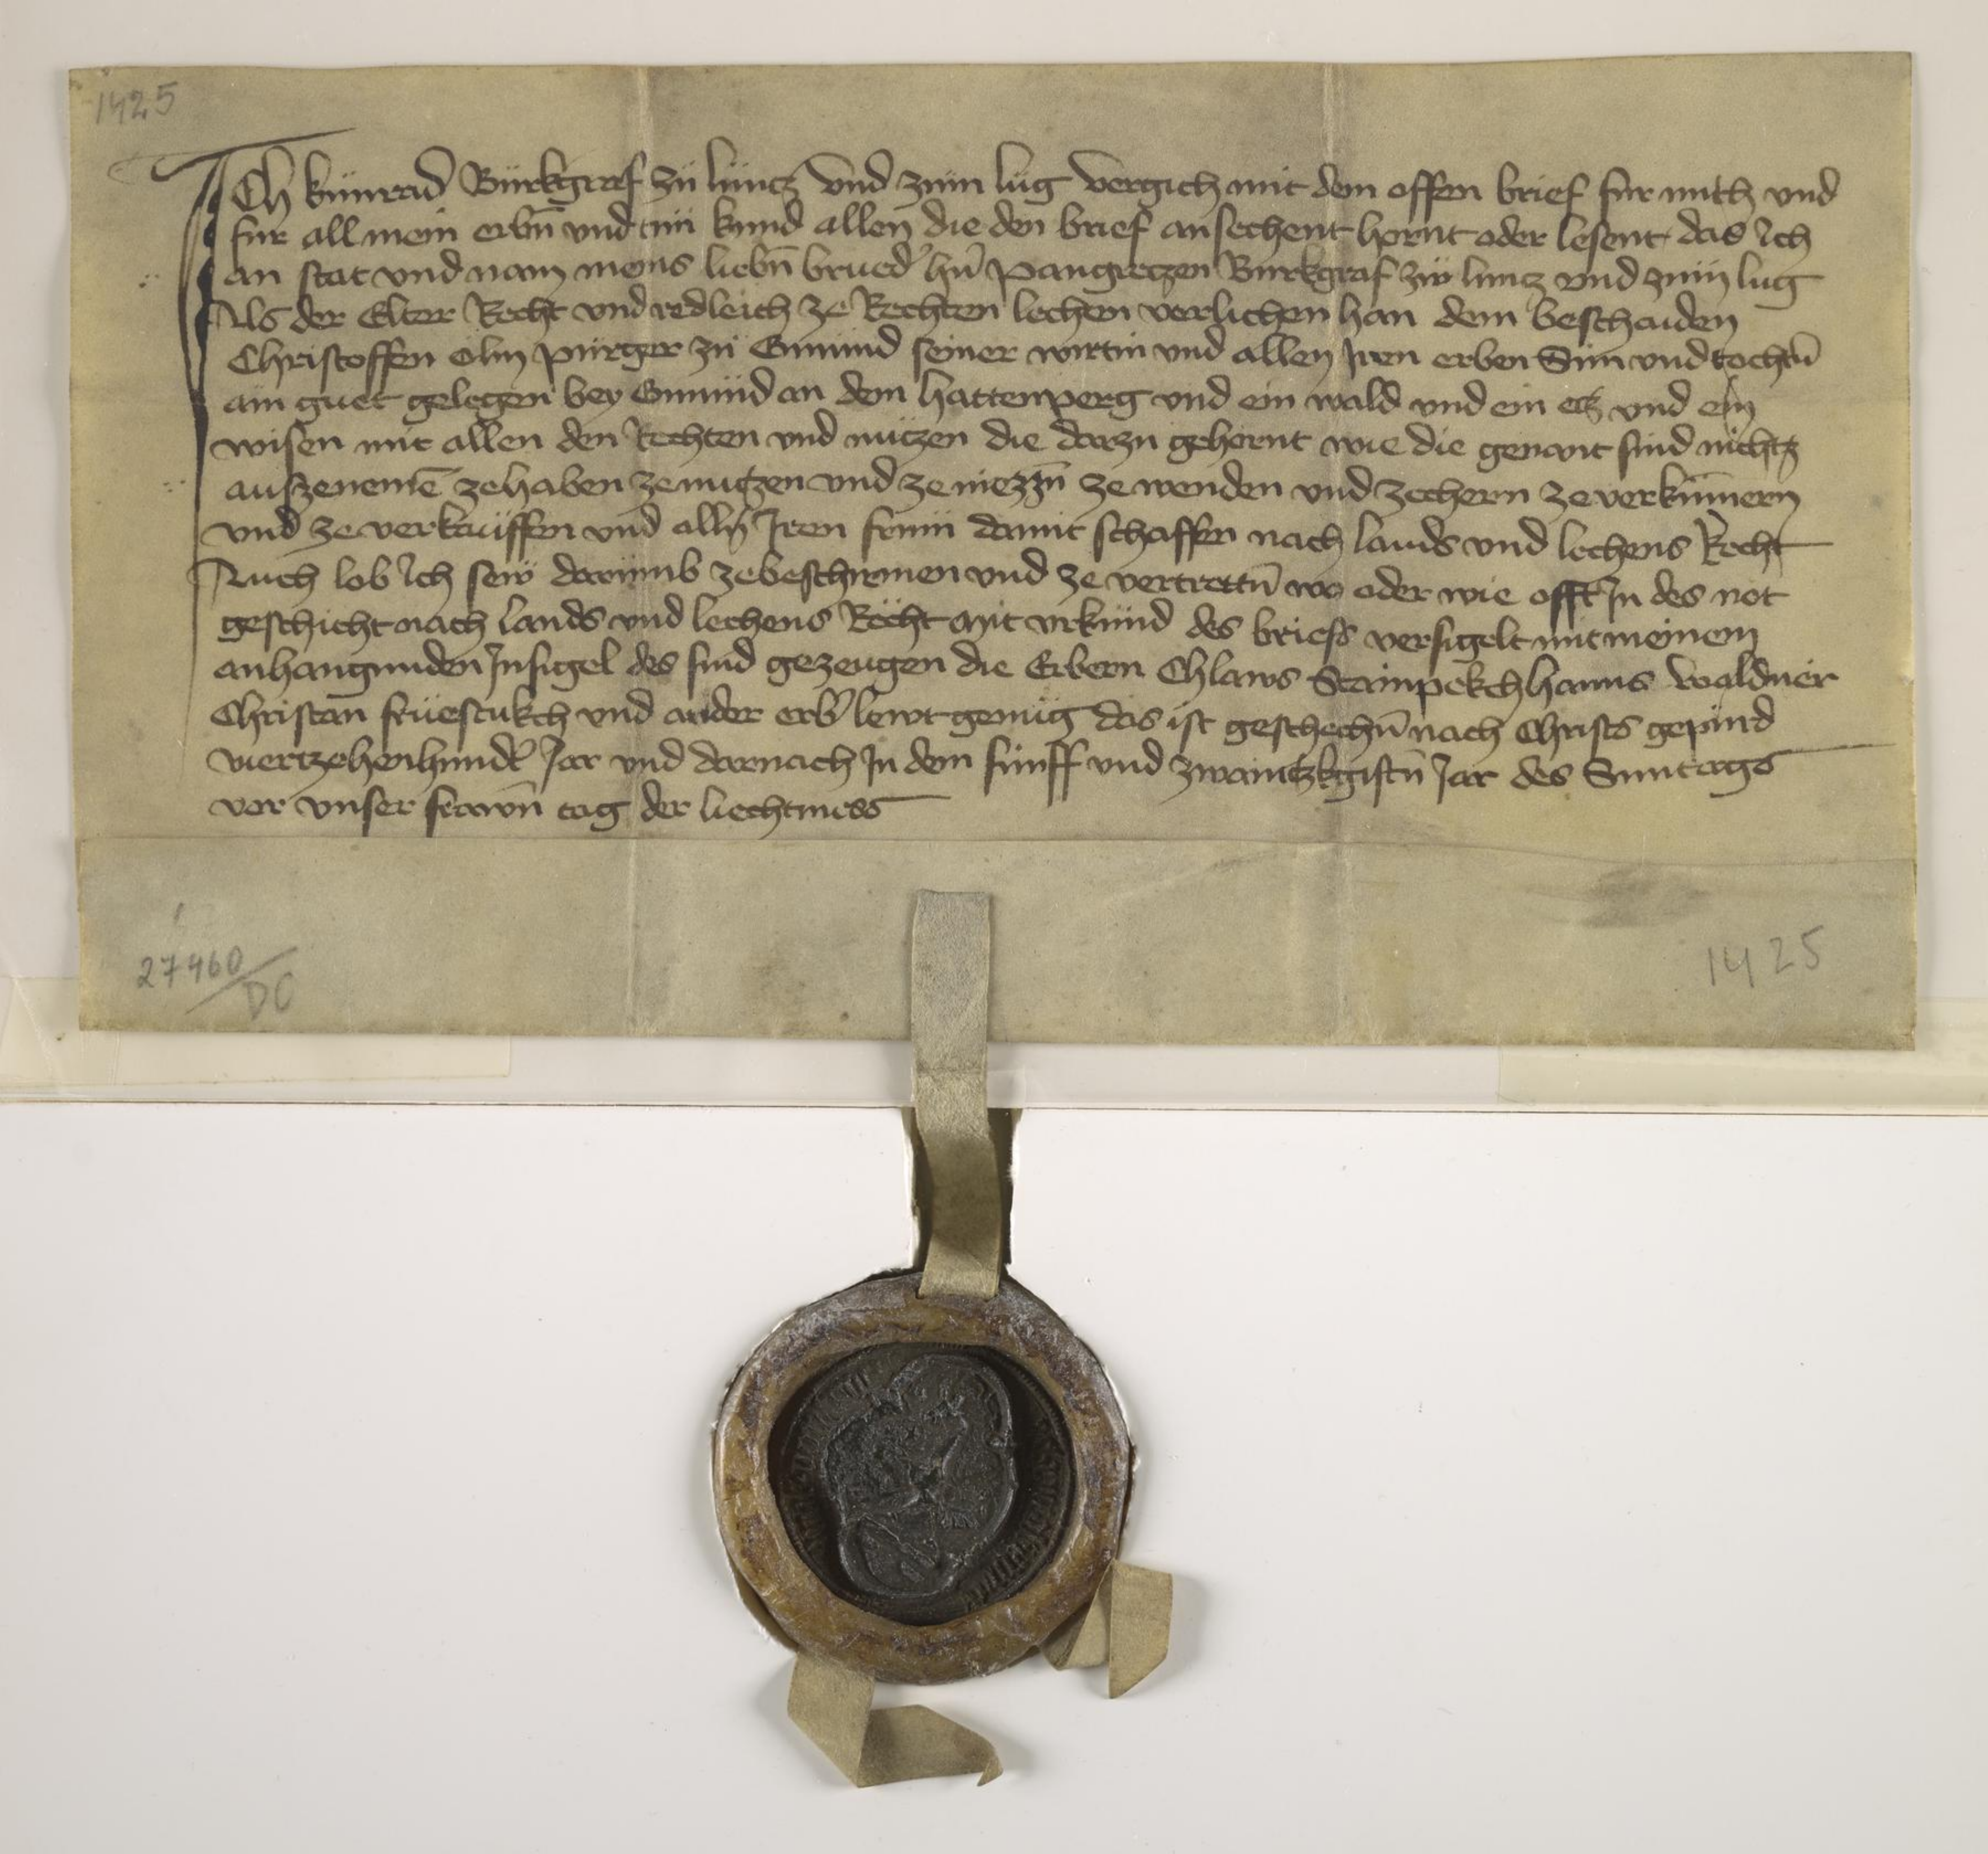 1425
Ich künrad Bürkgraf zü lüncz vnd züm lüg vergich mit dem offen brief fur mich vnd
fur all mein erbn̄ vnd tün kund allen die den brief ansechent hornt oder lesent das Ich
an stat vnd nam meins liebn̄ brued' hn̄ pangreczen Burkgraf zw luncz vnd zum lug
Als der Elter Recht vnd redleich ze Rechten lechen verlichen han dem beschaiden
Christoffen ölm pürger zü Gmünd seiner wirtin vnd allen Iren erben Sün vnd tochtn̄
ain guet gelegen bey Gmünd an dem hattenperg vnd ein wald vnd ein ecz vnd ein
wisen mit allen den Rechten vnd nüczen die darzu gehörnt wie die genant sind nichtz
auszenemē ze haben ze nuczen vnd ze niezzn̄ ze wenden vnd ze chern ze verkümern
vnd ze verkauffen vnd allen Iren frum damit schaffen nach lands vnd lechens Recht
Auch lob Ich sew darumb ze beschirmen vnd ze vertrettn̄ wo oder wie offt In des not
geschicht nach lands vnd lechens Recht mit vrkünd des briefs versigelt mit meinem
anhangunden Insigel des sind gezeugen die Erbern Chlaws Stainpekch hanns waldner
Christan früestukch vnd ander erb' lewt genüg das ist geschechn̄ nach Christs gepürd
viertzehenhundt' Iar vnd darnach In dem fünff vnd zwaintzkgistn̄ Iar des Suntags
vor vnser frawn̄ tag der liechtmess
27460/DC
1425